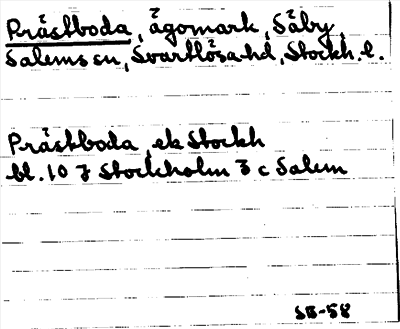 Prästboda, ägomark, Säby,
Salems sn, Svartlösa hd, Stockh. l.
Prästboda, ek Stockh
bl. 10 7 Stockholm 3 c Salem
SB-58